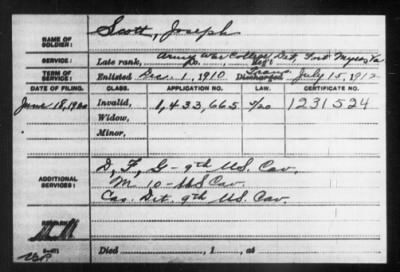 NAME OF SOLDIER: Scott, Joseph
SERVICE: Late rank, Army War College Det, Fort Myer, Va
Co. , Reg't
TERM OF SERVICE: Enlisted Dec. 1, 1910 Discharged Trans. July 15, 1912
DATE OF FILING. CLASS. APPLICATION NO. LAW. CERTIFICATE NO.
June 18, 1920 Invalid, 1,433,665 1231524
Widow,
Minor,
ADDITIONAL SERVICES: D, F, G - 9th U.S. Cav.
M 10 - U.S Cav.
Cas. Det. 9th U.S. Cav.
REMARKS:
Died , 1 , at